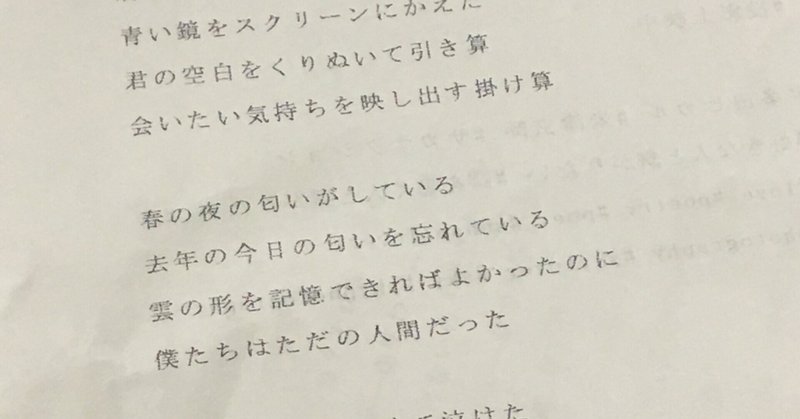 青い鏡をスクリーンにかえた
君の空白をくりぬいて引き算
会いたい気持ちを映し出す掛け算
春の夜の匂いがしている
去年の今日の匂いを忘れている
雲の形を記憶できればよかったのに
僕たちはただの人間だった
泣けた